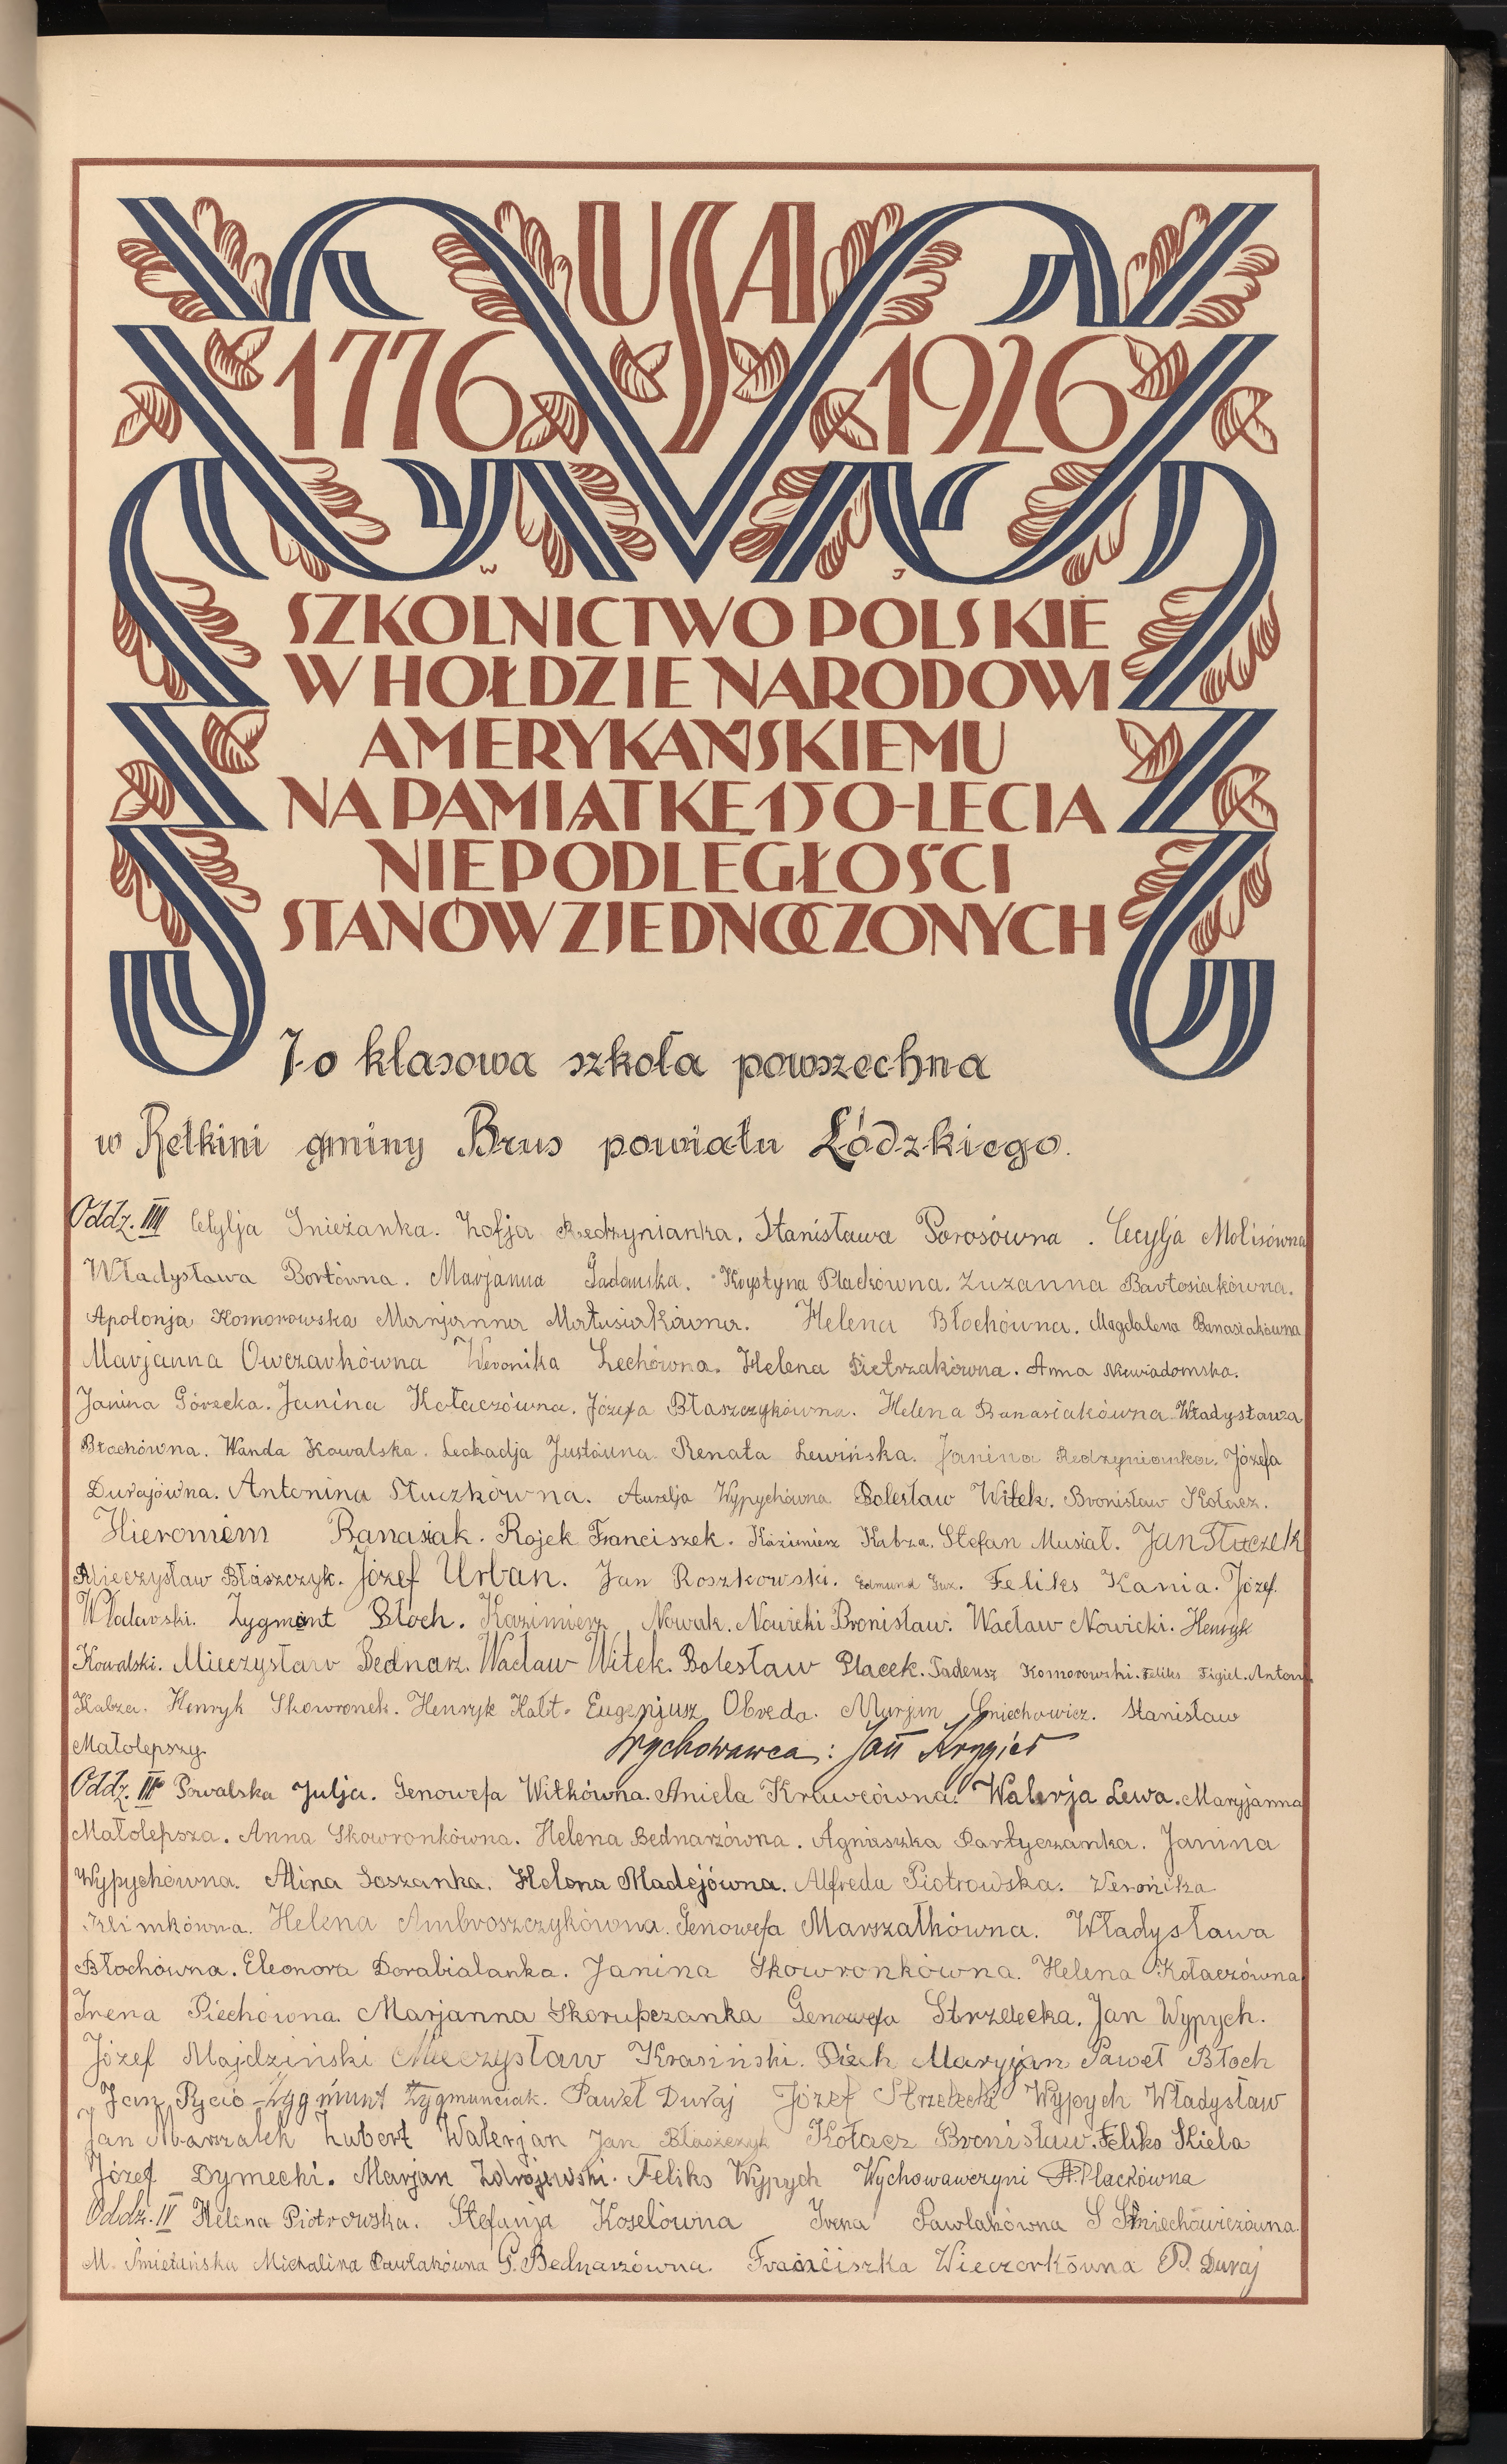 USA
1776 1926
W J
SZKOLNICTWO POLSKIE
W HOŁDZIE NARODOWI
AMERYKAŃSKIEMU
NA PAMIĄTKĘ 150-LECIA
NIEPODLEGŁOŚCI
STANÓW ZJEDNOCZONYCH
7-o klasowa szkoła powszechna
w Retkini gminy Brus powiatu Łódzkiego.
Oddz. IIII Cecylja Gnieżanka. Zofja Redzynianka. Stanisława Porosówna. Cecylja Molisówna
Władysława Bortówna. Marjanna Sadowska. Krystyna Plackówna. Zuzanna Bartosiakówna.
Apolonja Komorowska Marjanna Matusiakówna. Helena Błochówna. Magdalena Banasiakówna
Marjanna Owczarkówna Weronika Lechówna. Helena Pietrzakówna. Anna Niewiadomska.
Janina Górecka. Janina Kołaczówna. Józefa Błaszczykówna. Helena Banasiakówna Władysława
Błochówna. Wanda Kowalska. Leokadja Justówna Renata Lewińska. Janina Redzynianka. Józefa
Durajówna. Antonina Stuczkówna. Aurelja Wypychówna Bolesław Witek. Bronisław Kołacz.
Hieronim Banasiak. Rojek Franciszek. Kazimierz Kabza. Stefan Musiał. Jan Stuczek
Mieczysław Błaszczyk. Józef Urban. Jan Roszkowski. Edmund Feliks Kania. Józef.
Wladarski. Zygmont Błoch. Kazimierz Nowak. Nowicki Bronisław. Wacław Nowicki. Henryk
Kowalski. Mieczysław Bednarz. Wacław Witek. Bolesław Placek. Tadeusz Komorowski. Feliks Figiel. Antoni
Kabza. Henryk Skowronek. Henryk Kałt. Eugenjusz Obreda. Marjan Gniechowicz. Stanisław
Małolepszy. Wychowawca: Jan Krygier
Oddz. III Powalska Julja. Genowefa Witkówna. Aniela Krawcówna. Walerja Lewa. Maryjanna
Małolepsza. Anna Skowronkówna. Helena Bednarzówna. Agnieszka Partyczanka. Janina
Wypychówna. Alina Soszanka. Helena Madejówna. Alfreda Piotrowska. Weronika
Klimkówna. Helena Ambroszczykówna. Genowefa Marszałkówna. Władysława
Błochówna. Eleonora Dorabialanka. Janina Skowronkówna. Helena Kołaczówna
Irena Piechówna. Marjanna Skorupczanka Genowefa Strzelecka. Jan Wypych.
Józef Majdziński Mieczysław Krasiński. Piech Maryjan Paweł Błoch
Jan Pycio Zygmunt Zygmunciak. Paweł Duraj Józef Strzelecki Wypych Władysław
Jan Marszałek Lubert Walerjan Jan Błaszczyk Kołacz Bronisław. Feliks Kiela
Józef Dymecki. Marjan Zdrojewski. Feliks Wypych Wychowawczyni H. Plackówna
Oddz. IV Helena Piotrowska. Stefanja Koselówna Irena Pawlakówna S Śniechowiczówna.
M. Śmietańska Michalina Pawlakówna G. Bednarzówna. Franciszka Wieczorkówna P. Duraj